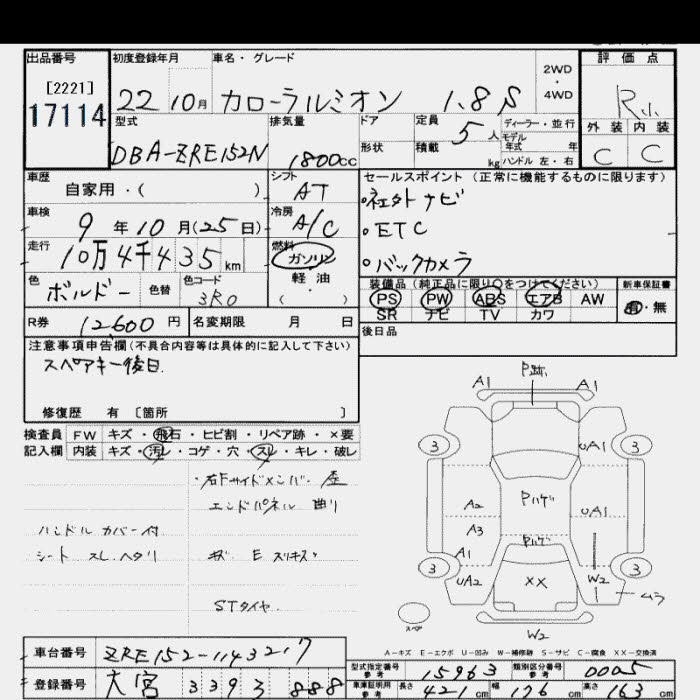 出品番号 初度登録年月 車名・グレード 2WD・4WD 評価点
[2221]
17114 22 10月 カローラルミオン 1.8 S R小
型式 排気量 ドア 定員 ディーラー・並行 外装 内装
DBA-ZRE152N 1800cc 形状 積載 5人 kg モデル年式 年 ハンドル 左・右 C C
車歴 自家用・( ) シフト AT セールスポイント (正常に機能するものに限ります)
車検 9年10月(25日) 冷房 A/C ・社外ナビ
・ETC
走行 10万4千435km 燃料 ガソリン ・バックカメラ
色 ボルドー 色替 色コード 3R0 軽油 ・( ) 装備品 (純正品に限り○をつけてください) 新車保証書
PS PW ABS エアB AW 有・無
SR ナビ TV カワ
R券 12,600円 名変期限 月 日 後日品
注意事項申告欄(不具合内容等は具体的に記入して下さい)
スペアキー後日.
修復歴 有 〔箇所 〕
検査員 FW キズ・飛石・ヒビ割・リペア跡・×要
記入欄 内装 キズ・汚レ・コゲ・穴・スレ・キレ・破レ
・右Fサイドメンバー 歪
エンドパネル 曲り
ハンドルカバー付
シート スレ ヘタリ キズ E スリキズ
STタイヤ.
P跡
A1 A1
3 UA1 3
A2 Pハゲ UA1
A3
A1 Pハゲ
3 UA2 XX W2 3
ムラ
スペア W2
A-キズ E-エクボ U-凹み W-補修跡 S-サビ C-腐食 XX-交換済
車台番号 ZRE152-1143217 型式指定番号 参考 15963 類別区分番号 参考 0005
登録番号 大宮 339 3 888 車庫証明用 参考 長さ 421cm 幅 176cm 高さ 163cm